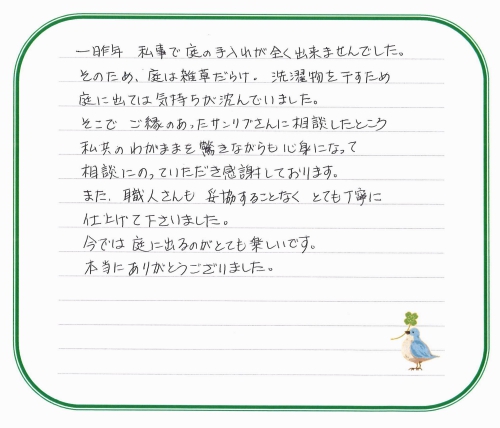 一昨年 私事で庭の手入れが全く出来ませんでした。
そのため、庭は雑草だらけ。洗濯物を干すため
庭に出ては気持ちが沈んでいました。
そこで ご縁のあったサンリブさんに相談したところ
私共のわがままを驚きながらも心身になって
相談にのっていただき感謝しております。
また、職人さんも 妥協することなく とても丁寧に
仕上げて下さいました。
今では 庭に出るのがとても楽しいです。
本当にありがとうございました。